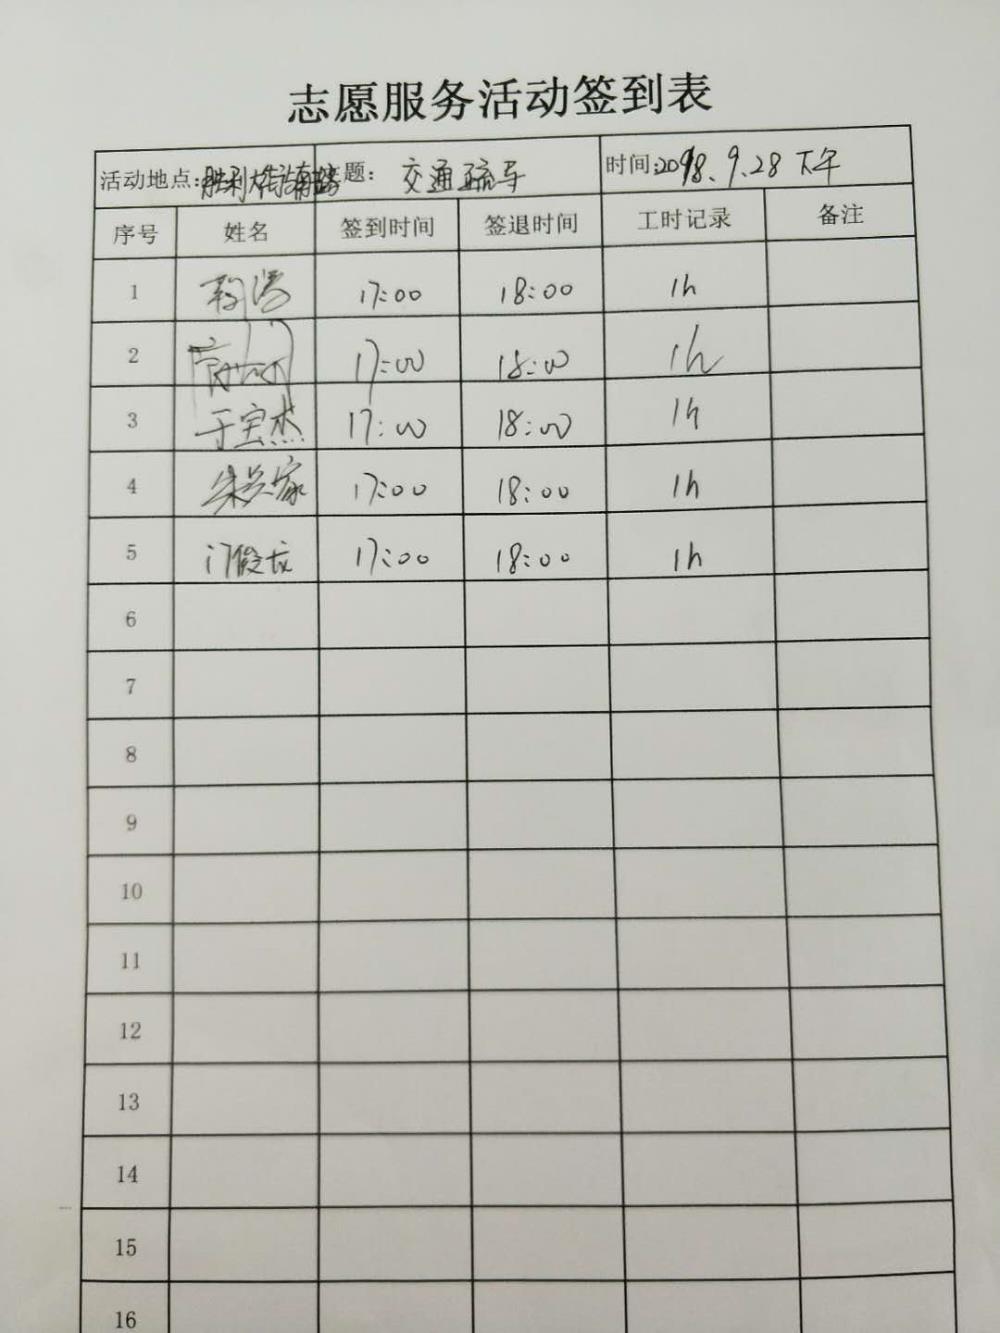 志愿服务活动签到表
活动地点: 胜利大街 题: 交通疏导 时间: 2018.9.28 下午
序号 姓名 签到时间 签退时间 工时记录 备注
1 17:00 18:00 1h
2 17:00 18:00 1h
3 于宝杰 17:00 18:00 1h
4 17:00 18:00 1h
5 17:00 18:00 1h
6
7
8
9
10
11
12
13
14
15
16